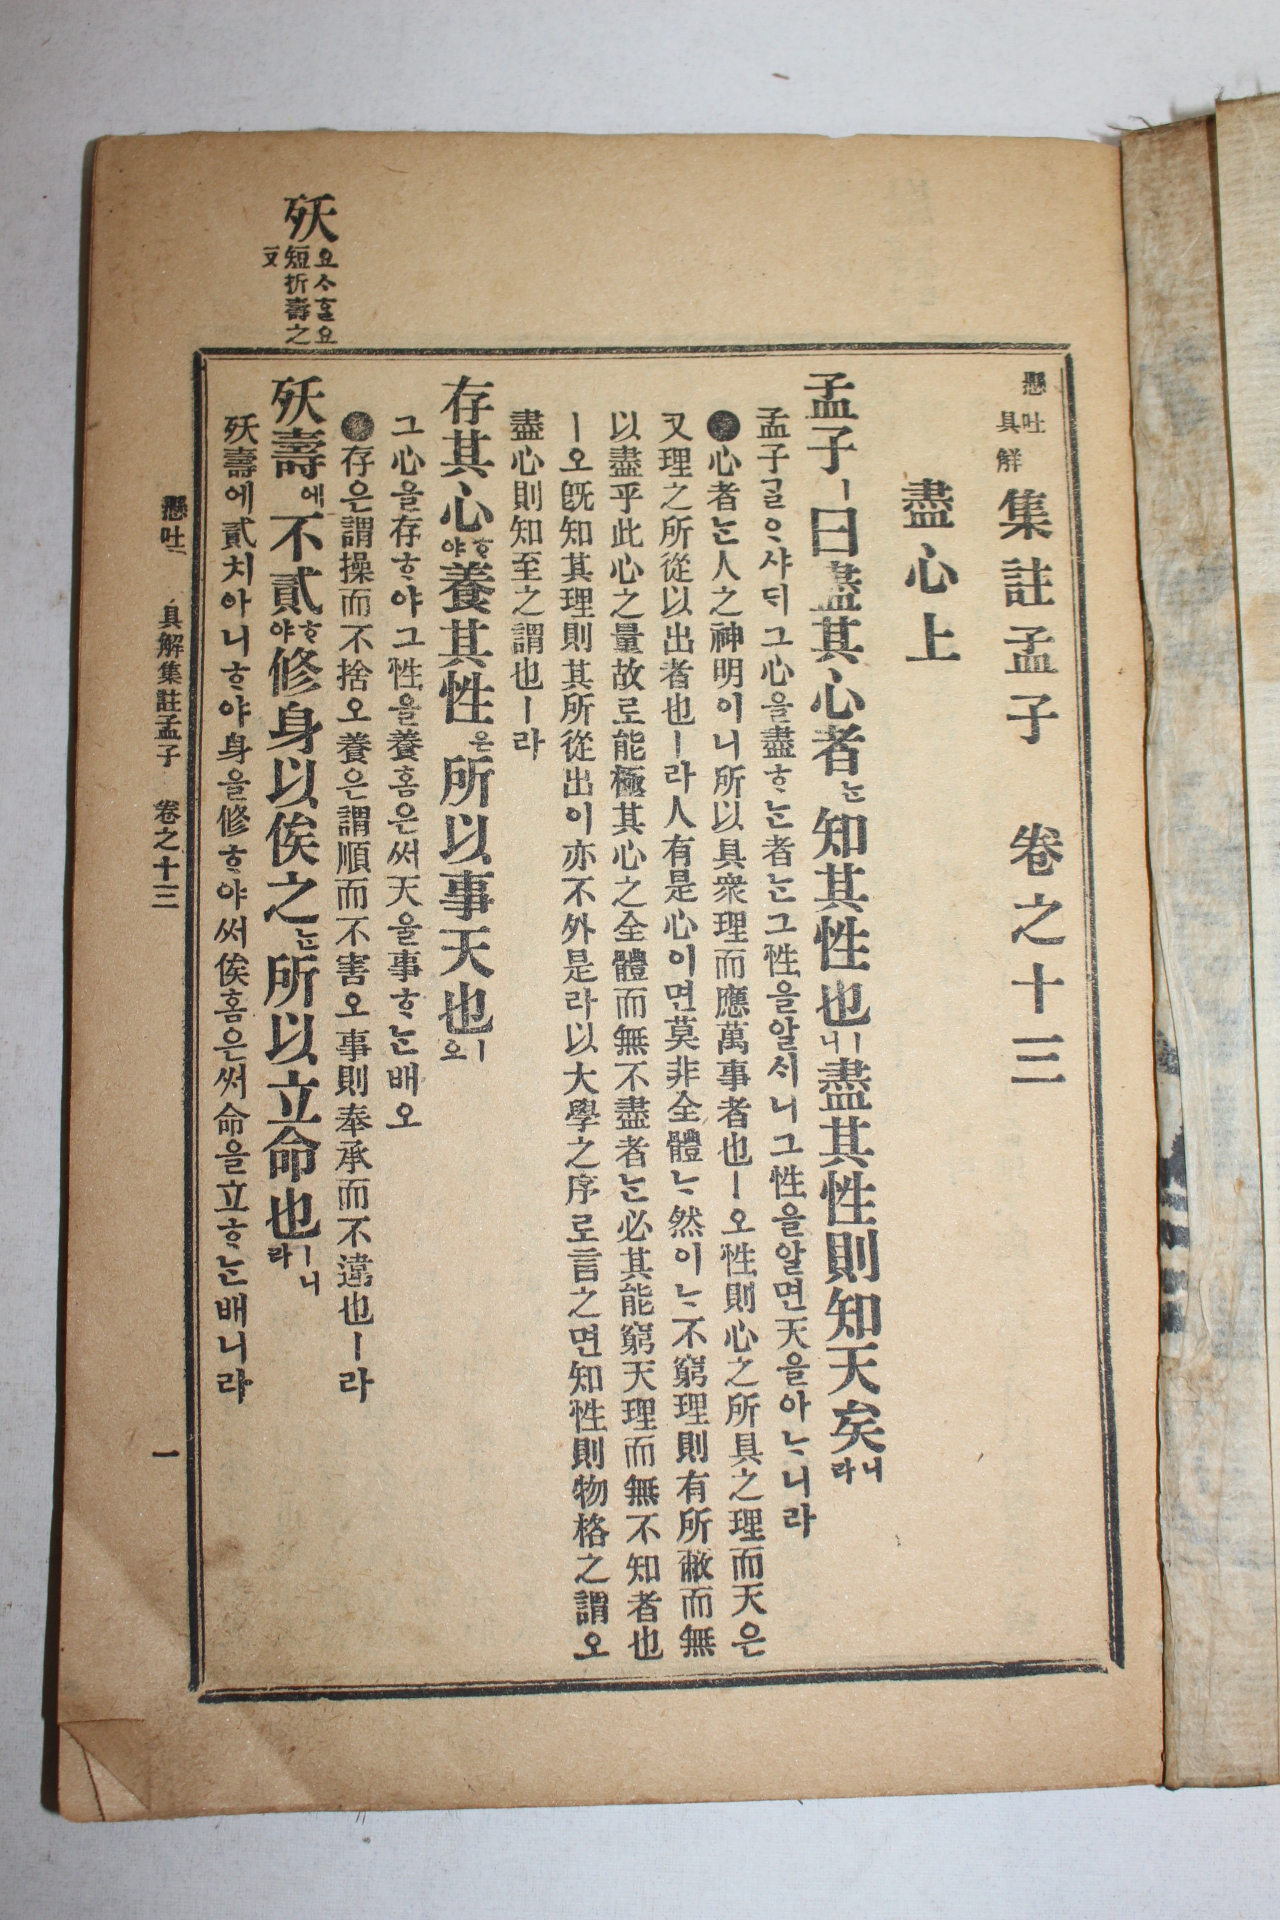 懸吐具解 集註孟子 卷之十三
盡心上
孟子ㅣ曰盡其心者ᄂᆞᆫ知其性也ㅣ니盡其性則知天矣니라
孟子ᄀᆞᆯᄋᆞ샤ᄃᆡ그心을盡ᄒᆞᄂᆞᆫ者ᄂᆞᆫ그性을알시니그性을알면天을아ᄂᆞ니라
●心者ᄂᆞᆫ人之神明이니所以具衆理而應萬事者也ㅣ오性則心之所具之理而天은
又理之所從以出者也ㅣ라人有是心이면莫非全體ᄂᆞ然이ᄂᆞ不窮理則有所蔽而無
以盡乎此心之量故로能極其心之全體而無不盡者ᄂᆞᆫ必其能窮天理而無不知者也
ㅣ오旣知其理則其所從出이亦不外是라以大學之序로言之면知性則物格之謂오
盡心則知至之謂也ㅣ라
存其心ᄒᆞ야養其性은所以事天也ㅣ오
그心을存ᄒᆞ야그性을養홈은써天을事ᄒᆞᄂᆞᆫ배오
●存은謂操而不捨오養은謂順而不害오事則奉承而不違也ㅣ라
殀壽에不貳ᄒᆞ야修身以俟之ᄂᆞᆫ所以立命也ㅣ니라
殀壽에貳치아니ᄒᆞ야身을修ᄒᆞ야써俟홈은써命을立ᄒᆞᄂᆞᆫ배니라
殀 요ᄉᆞᄒᆞᆯ요 短折壽之 一又
懸吐 具解集註孟子 卷之十三 一